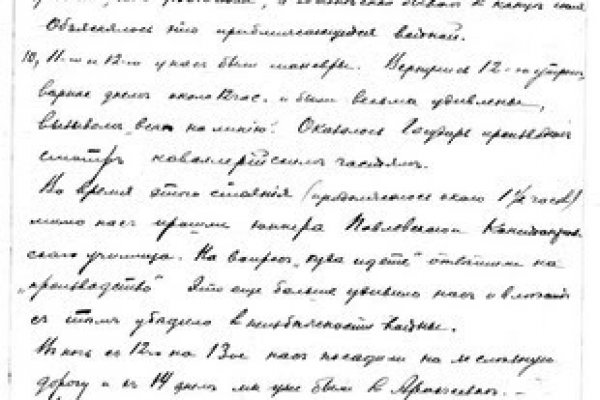 Объяснялось это приближающейся войной.
10, 11-го и 12-го у нас были маневры. Вернулись 12-го утром,
вернее днем около 12 час. и были весьма удивлены,
вызывом „всех на линию“. Оказалось Государь производил
смотр кавалерийским частям.
Во время этого стояния (продолжалось около 1½ часов)
мимо нас прошли юнкера Павловского Константинов-
ского училища. На вопрос „куда идете“ ответили на
„производство“ Это еще больше удивило нас и вместе
с тем убедило в неизбежности войны.
В ночь с 12-го на 13-ое нас посадили на железную
дорогу и к 14 днем мы уже были в